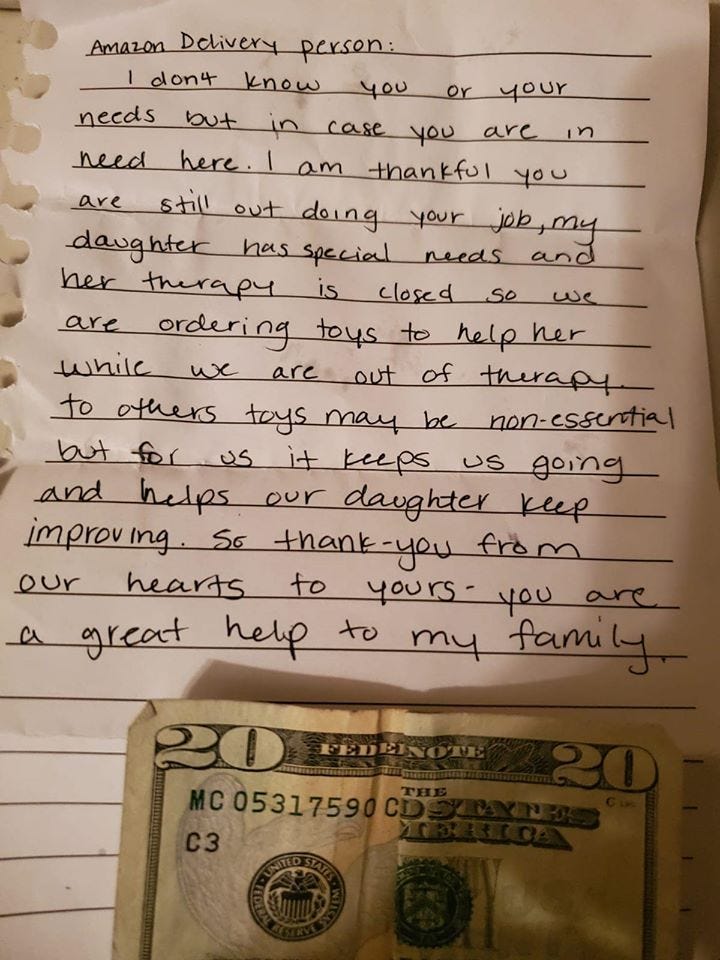 Amazon Delivery person:
I don4 know you or your
needs but in case you are in
need here. I am thankful you
are still out doing your job, my
daughter has special needs and
her therapy is closed so we
are ordering toys to help her
while we are out of therapy.
to others toys may be non-essential
but for us it keeps us going
and helps our daughter keep
improving. So thank-you from
our hearts to yours- you are
a great help to my family.
20 FEDE NOTE 20
THE
MC 05317590 C D STATES
MERICA
C3
UNITED STATES
FEDERAL RESERVE